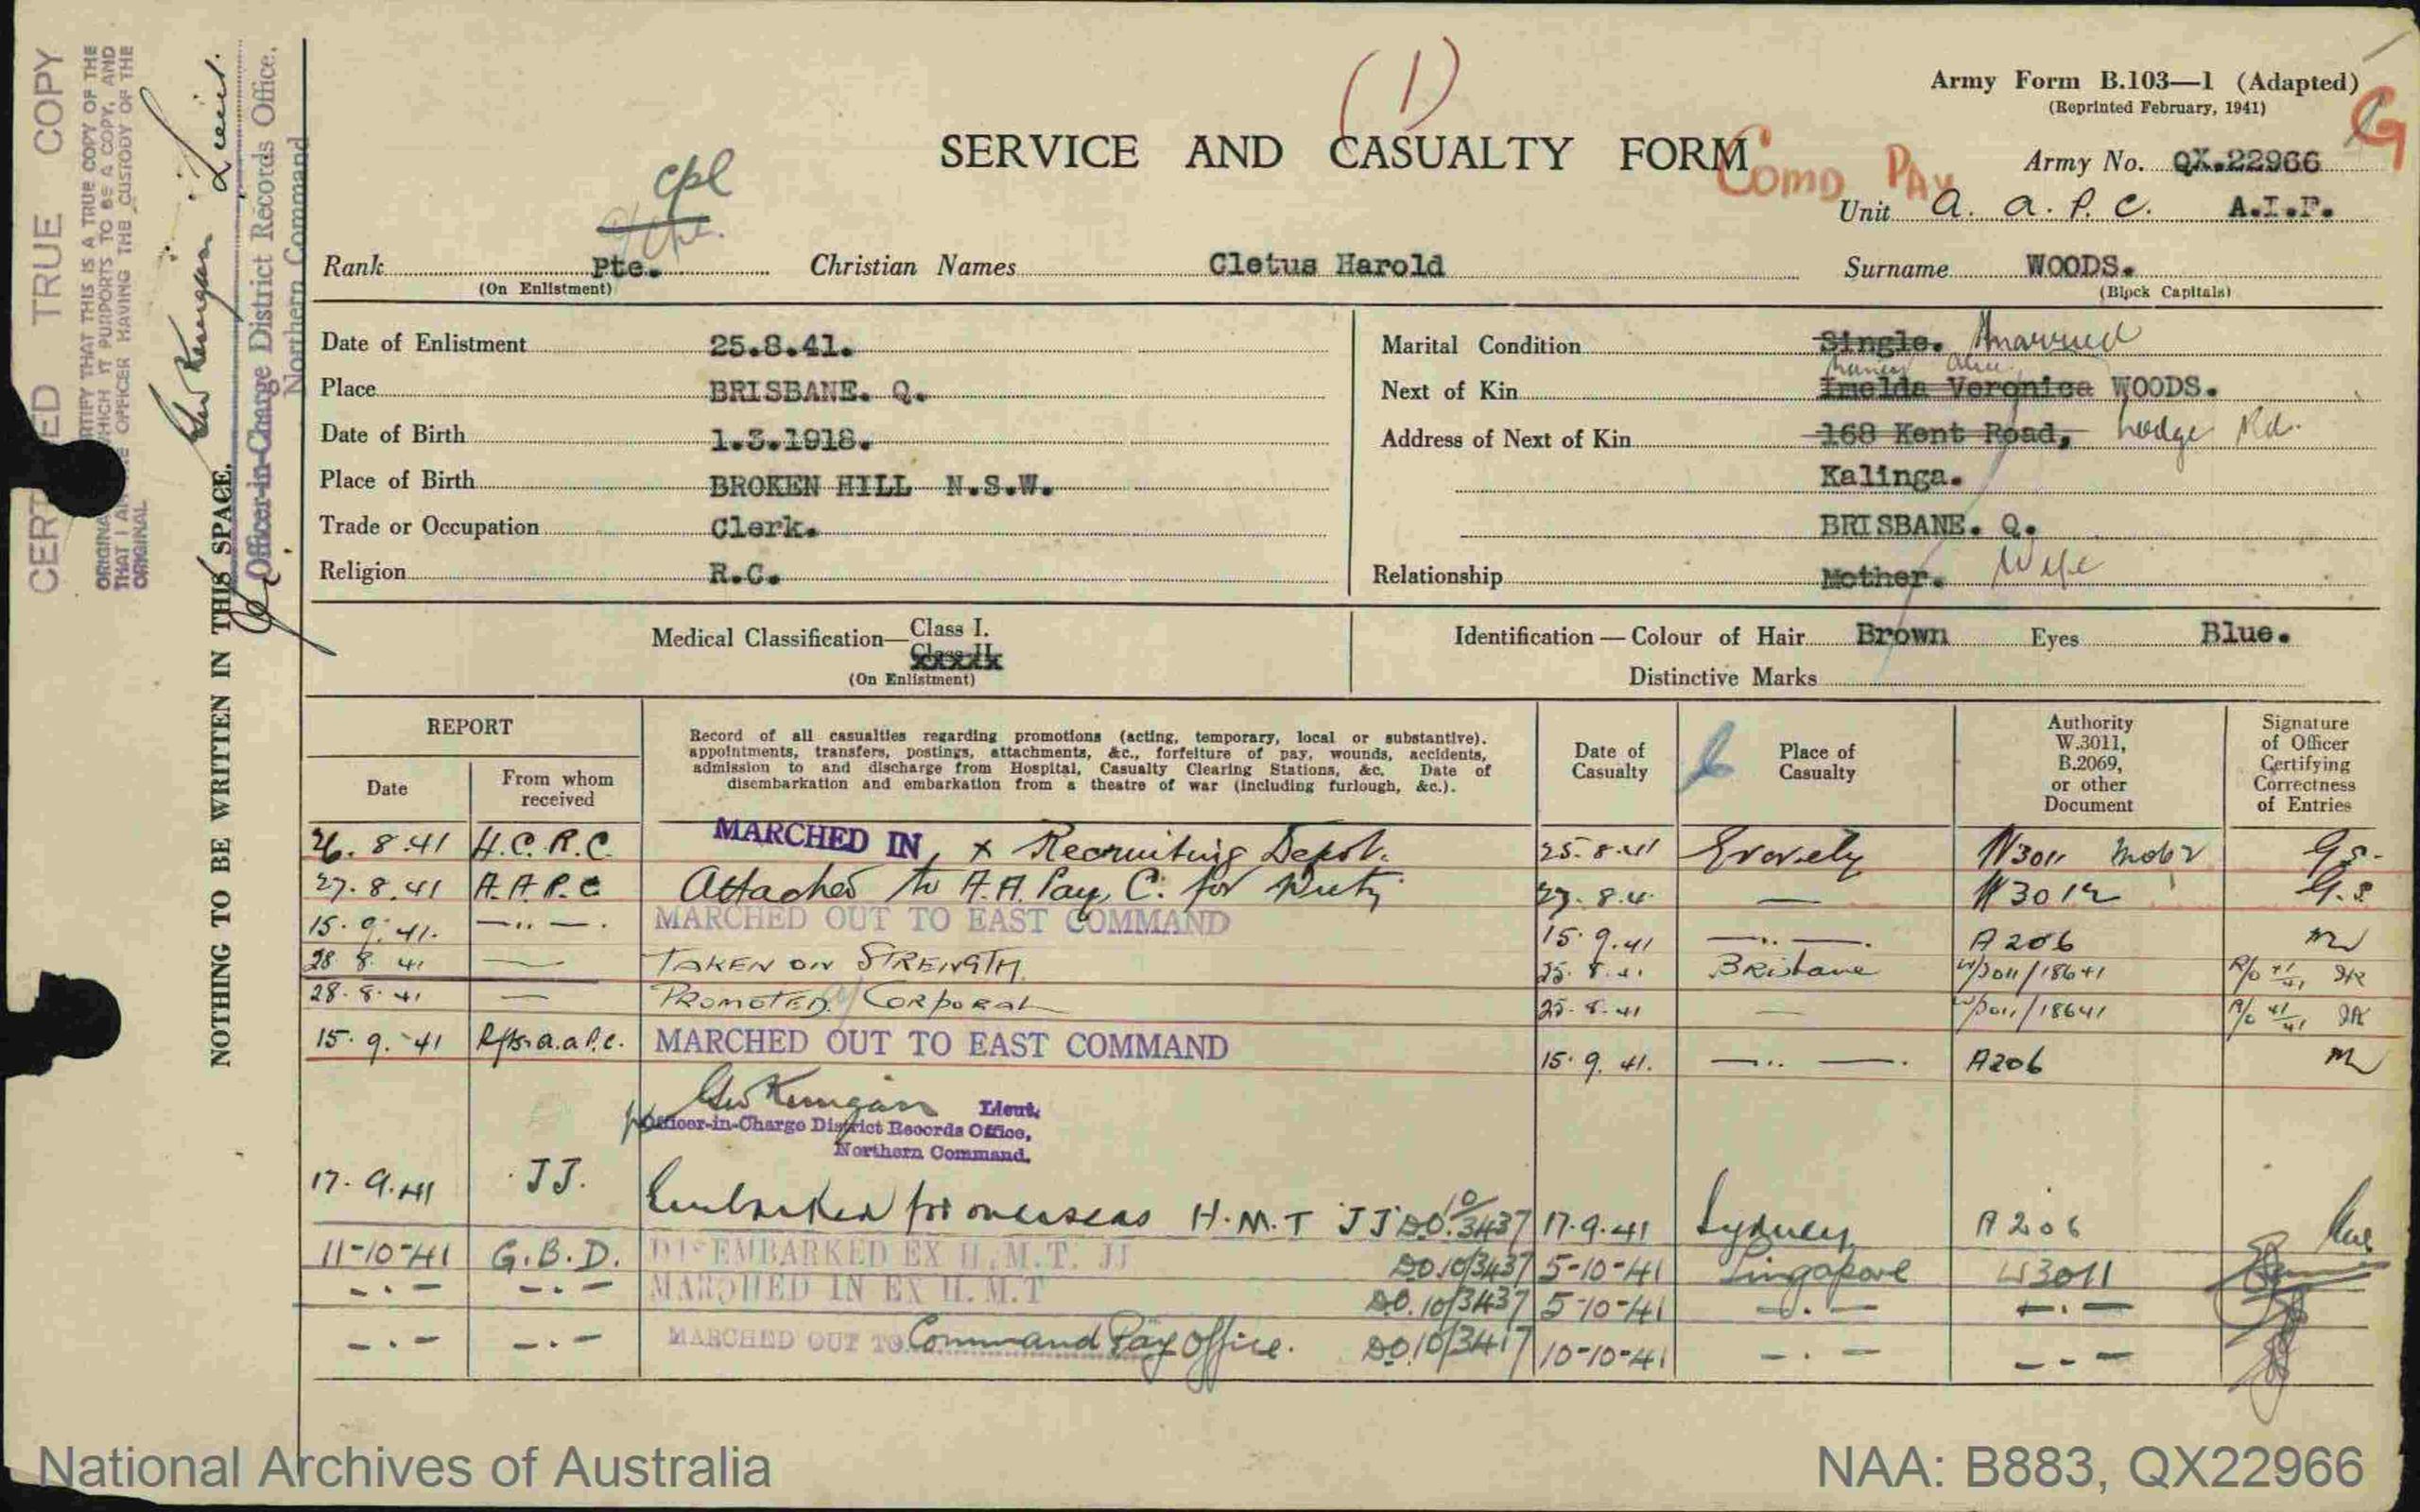 (1)
Army Form B.103—1 (Adapted)
(Reprinted February, 1941)
G
SERVICE AND CASUALTY FORM
Comd Pay
Army No. QX.22966
Unit A. A. P. C. A.I.F.
cpl
Rank Pte. Christian Names Cletus Harold Surname WOODS.
(On Enlistment) (Block Capitals)
Date of Enlistment 25.8.41.
Place BRISBANE. Q.
Date of Birth 1.3.1918.
Place of Birth BROKEN HILL N.S.W.
Trade or Occupation Clerk.
Religion R.C.
Marital Condition Single. Married
Next of Kin Imelda Veronica WOODS.
Address of Next of Kin 168 Kent Road, Lodge Rd.
Kalinga.
BRISBANE. Q.
Relationship Mother. Wife
Medical Classification— Class I.
Class II.
(On Enlistment)
Identification — Colour of Hair Brown Eyes Blue.
Distinctive Marks
REPORT
Date
From whom received
Record of all casualties regarding promotions (acting, temporary, local or substantive).
appointments, transfers, postings, attachments, &c., forfeiture of pay, wounds, accidents,
admission to and discharge from Hospital, Casualty Clearing Stations, &c. Date of
disembarkation and embarkation from a theatre of war (including furlough, &c.).
Date of Casualty
Place of Casualty
Authority W.3011, B.2069, or other Document
Signature of Officer Certifying Correctness of Entries
26.8.41 H.C.R.C. MARCHED IN, x Recruiting Depot. 25.8.41 W3011
27.8.41 A.A.P.C Attached to A.A. Pay C. for Duty 27.8.4 — W3012 G.S.
15.9.41. —..—. MARCHED OUT TO EAST COMMAND 15.9.41 —..—. A206
28.8.41 — TAKEN ON STRENGTH 25.8.41 Brisbane W3011/18641
28.8.41 — PROMOTED A/ CORPORAL 25.8.41 — W3011/18641
15.9.41 A.A.P.C. MARCHED OUT TO EAST COMMAND 15.9.41. —..—. A206
Lieut.
Officer-in-Charge District Records Office,
Northern Command.
17.9.41 JJ. Embarked for overseas H.M.T JJ DO.10/3437 17.9.41 Sydney A206
11-10-41 G.B.D. DISEMBARKED EX H.M.T. JJ DO10/3437 5-10-41 Singapore W3011
—.— —.— MARCHED IN EX H.M.T DO.10/3437 5-10-41 —.— —.—
—.— —.— MARCHED OUT TO Command Pay Office. DO10/3417 10-10-41 —.— —.—
CERTIFIED TRUE COPY
NOTHING TO BE WRITTEN IN THIS SPACE.
Lieut.
Officer-in-Charge District Records Office,
Northern Command
National Archives of Australia
NAA: B883, QX22966